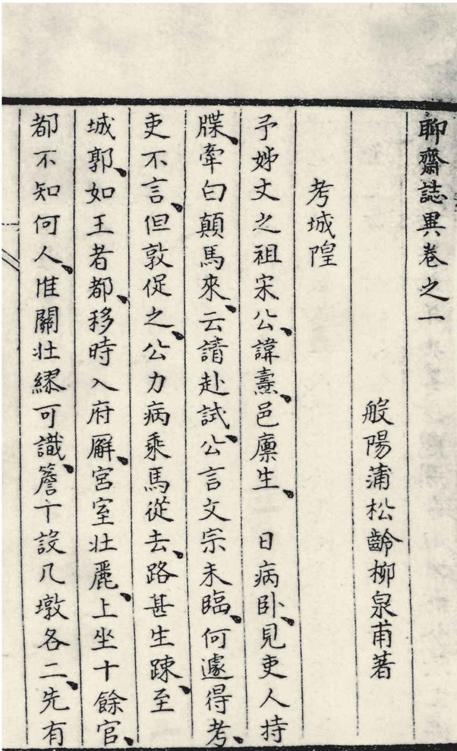 聊齋誌異卷之一
般陽蒲松齡柳泉甫著
考城隍
予姊丈之祖宋公、諱燾、邑廩生、 日病卧、見吏人持
牒、牽白顛馬來、云請赴試、公言文宗未臨、何遽得考、
吏不言、但敦促之、公力病乘馬從去、路甚生踈、至
城郭、如王者都、移時入府廨、宮室壮麗、上坐十餘官、
都不知何人、惟關壮繆可識、簷下設几墩各二、先有